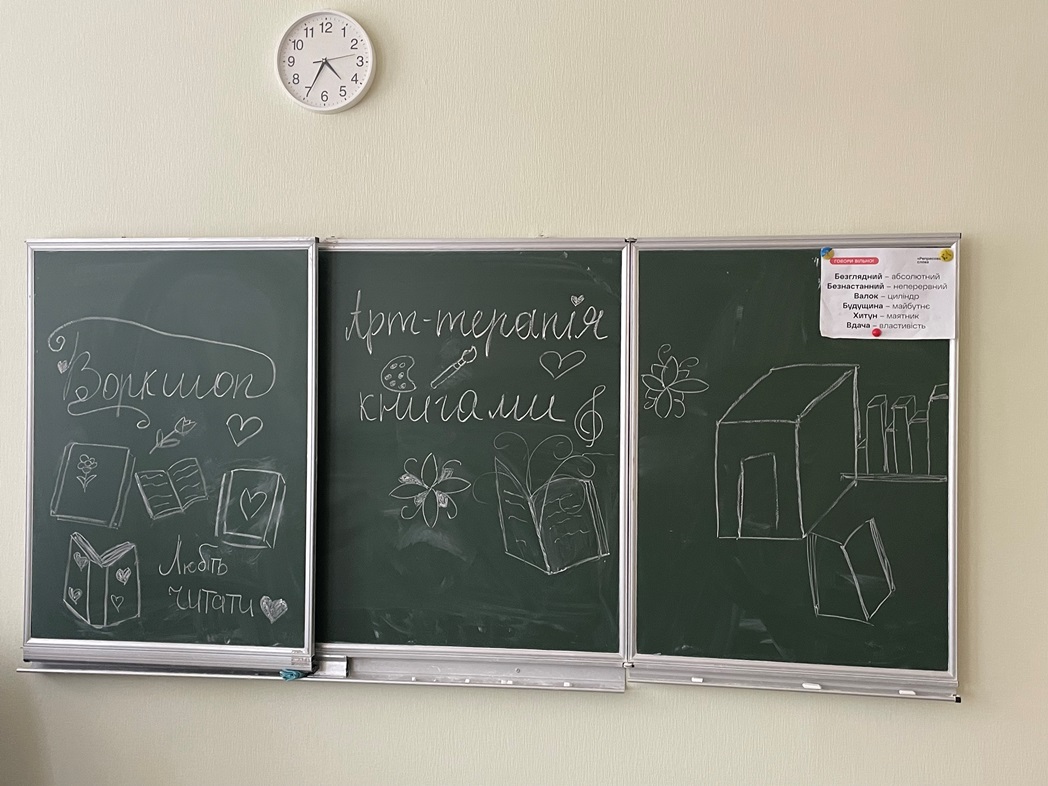 12
1
2
3
4
5
6
7
8
9
10
11
Воркшоп
Любіть
читати
Арт-терапія
книгами
ГОВОРИ ВІЛЬНО!
Безглядний – абсолютний
Безнастанний – неперервний
Валок – циліндр
Будущина – майбутнє
Хитун – маятник
Вдача – властивість